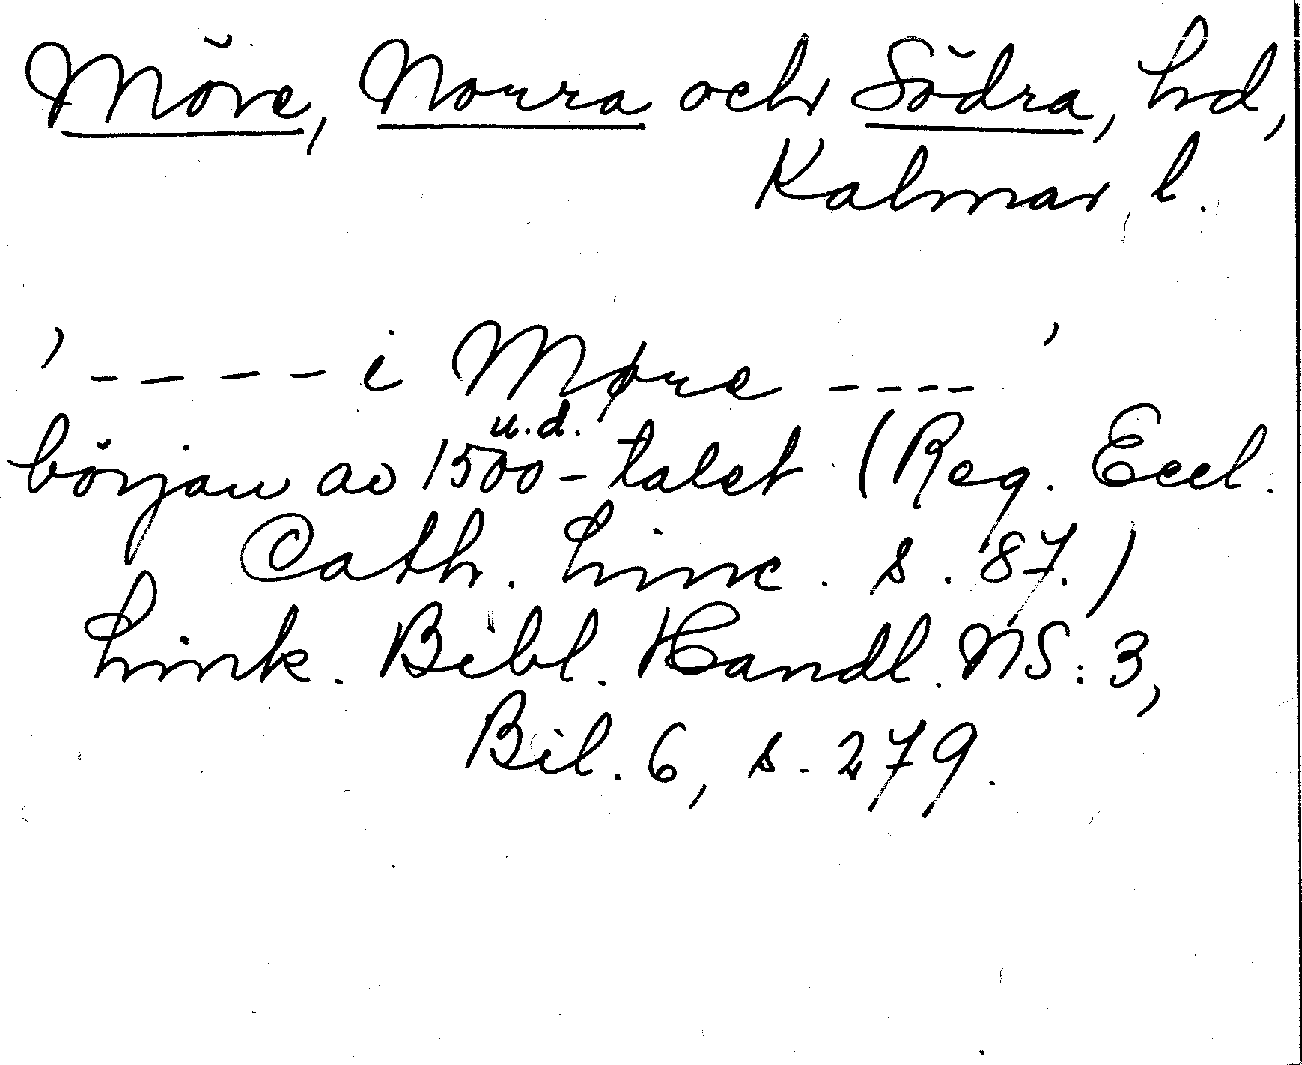 Möre, Norra och Södra, hd,
Kalmar l.
' - - - - i Møre - - - - '
u.d.
början av 1500-talet (Reg. Eccl.
Cath. Linc. s. 87.)
Link. Bibl. Handl. NS: 3,
Bil. 6, s. 279.